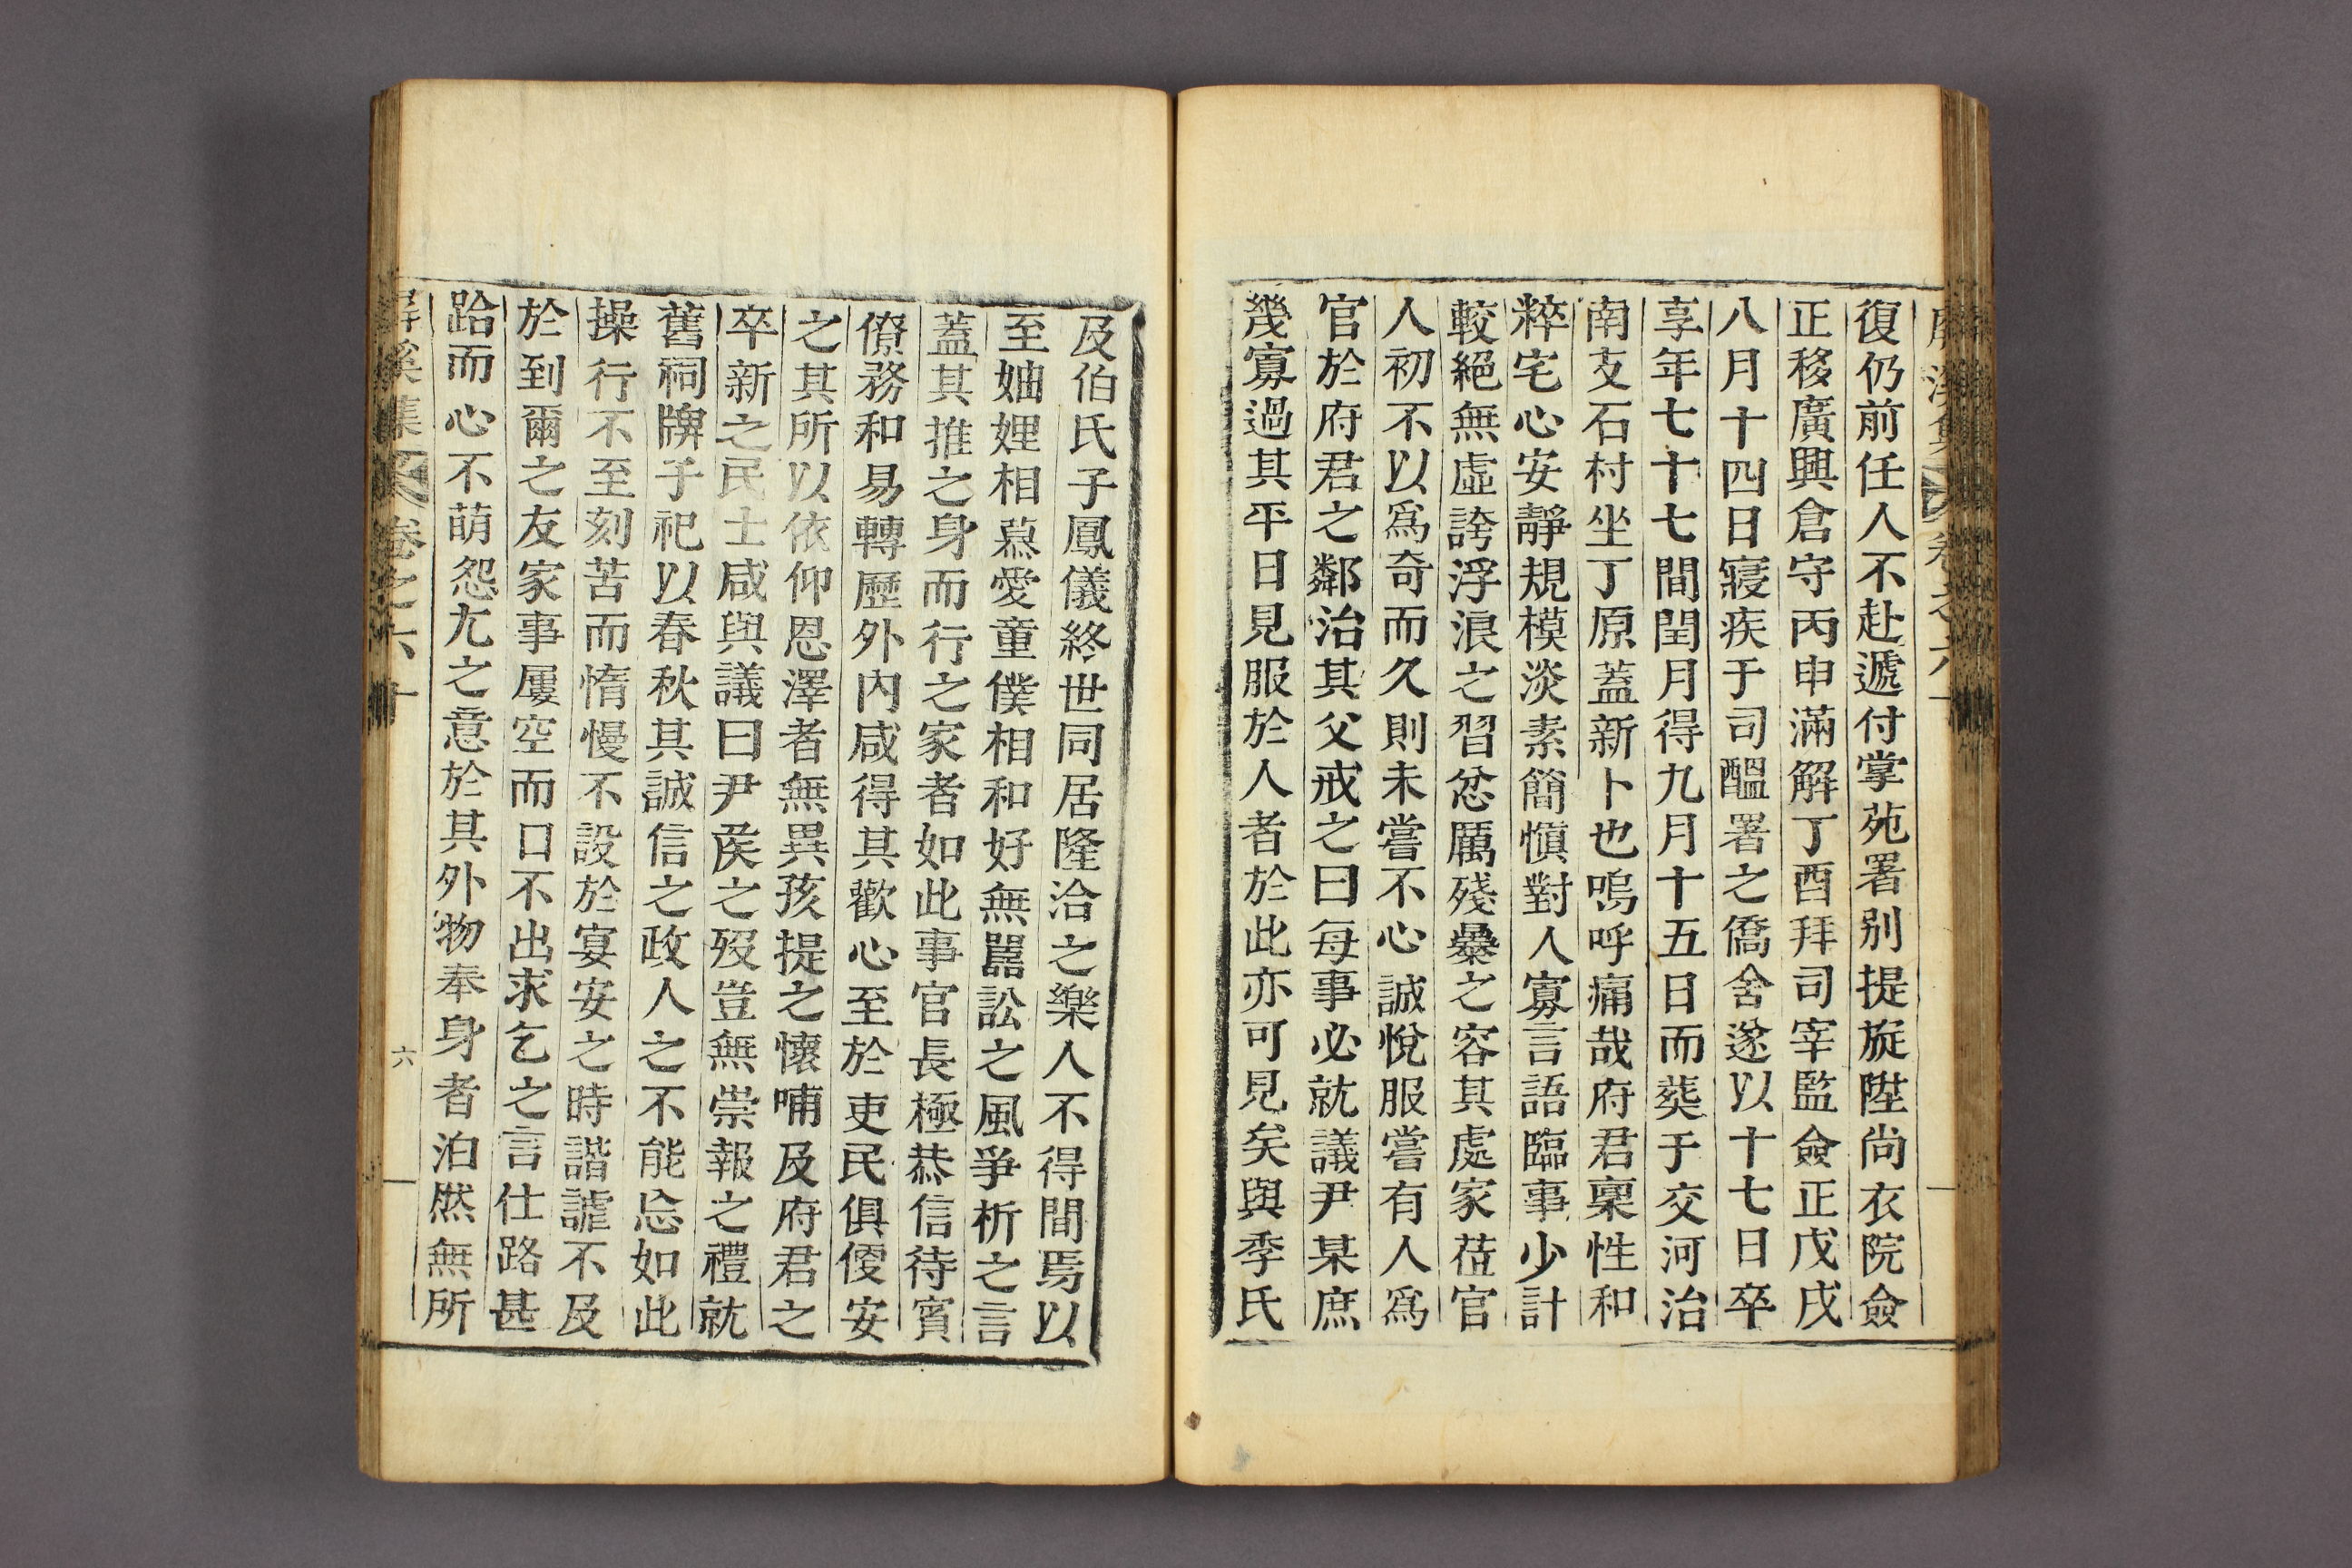 復仍前任人不赴遞付掌苑署别提旋陞尚衣院僉
正移廣興倉守丙申滿解丁酉拜司宰監僉正戊戌
八月十四日寢疾于司醞署之僑舍遂以十七日卒
享年七十七間閏月得九月十五日而葬于交河治
南支石村坐丁原蓋新卜也嗚呼痛哉府君稟性和
粹宅心安靜規模淡素簡愼對人寡言語臨事少計
較絕無虛誇浮浪之習忿厲殘㬥之容其處家莅官
人初不以爲奇而久則未嘗不心誠悅服嘗有人爲
官於府君之鄰治其父戒之曰每事必就議尹某庶
幾寡過其平日見服於人者於此亦可見矣與季氏
及伯氏子鳳儀終世同居隆洽之樂人不得間焉以
至妯娌相慕愛童僕相和好無嚚訟之風爭析之言
蓋其推之身而行之家者如此事官長極恭信待賓
僚務和易轉歷外內咸得其歡心至於吏民俱優安
之其所以依仰恩澤者無異孩提之懷哺及府君之
卒新之民士咸與議曰尹侯之歿豈無崇報之禮就
舊祠牌予祀以春秋其誠信之政人之不能忘如此
操行不至刻苦而惰慢不設於宴安之時諧謔不及
於到爾之友家事屢空而口不出求乞之言仕路甚
跲而心不萌怨尤之意於其外物奉身者泊然無所
屛溪集 卷之六十 六